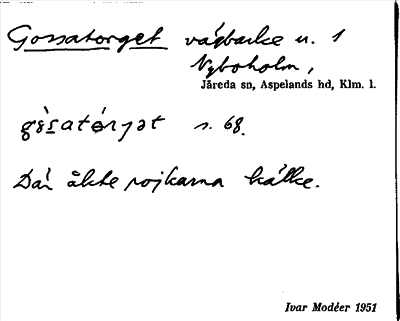 Gossatorget vägbacke u. 1
Nyboholm,
Järeda sn, Aspelands hd, Klm. l.
s. 68.
Där åkte pojkarna kälke.
Ivar Modéer 1951